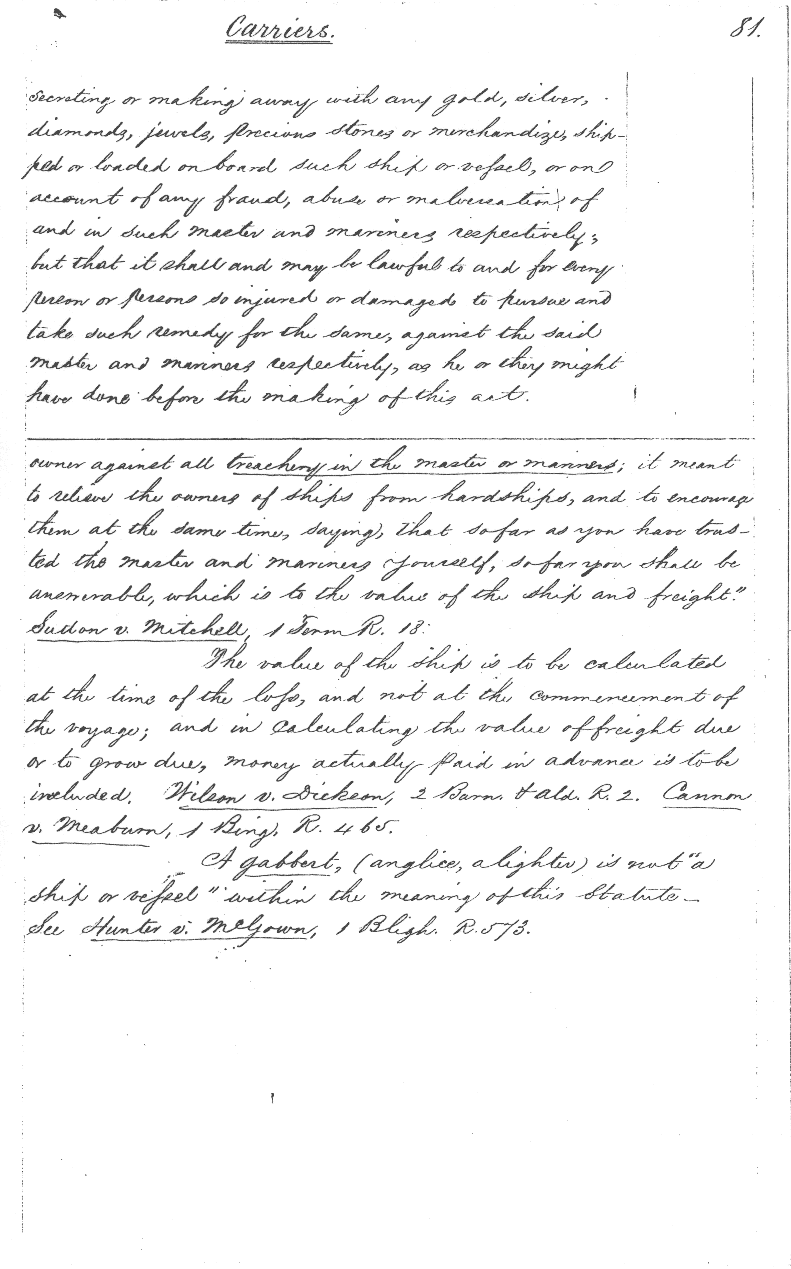 Carriers.
81.
secreting or making away with any gold, silver,
diamonds, jewels, precious stones or merchandize, ship-
ped or loaded on board such ship or vessel, or on
account of any fraud, abuse or malversation of
and in such master and mariners respectively;
but that it shall and may be lawful to and for every
person or persons so injured or damaged to pursue and
take such remedy for the same, against the said
master and mariners respectively, as he or they might
have done before the making of this act.
owner against all treachery in the master or mariners; it meant
to relieve the owners of ships from hardships, and to encourage
them at the same time, saying, that so far as you have trus-
ted the master and mariners yourself, so far you shall be
answerable, which is to the value of the ship and freight."
Sutton v. Mitchell, 1 Term R. 18.
The value of the ship is to be calculated
at the time of the loss, and not at the commencement of
the voyage; and in calculating the value of freight due
or to grow due, money actually paid in advance is to be
included. Wilson v. Dickson, 2 Barn. & Ald. R. 2. Cannon
v. Meaburn, 1 Bing. R. 465.
A gabbert, (anglice, a lighter) is not "a
ship or vessel" within the meaning of this Statute_
See Hunter v. McGown, 1 Bligh. R. 573.